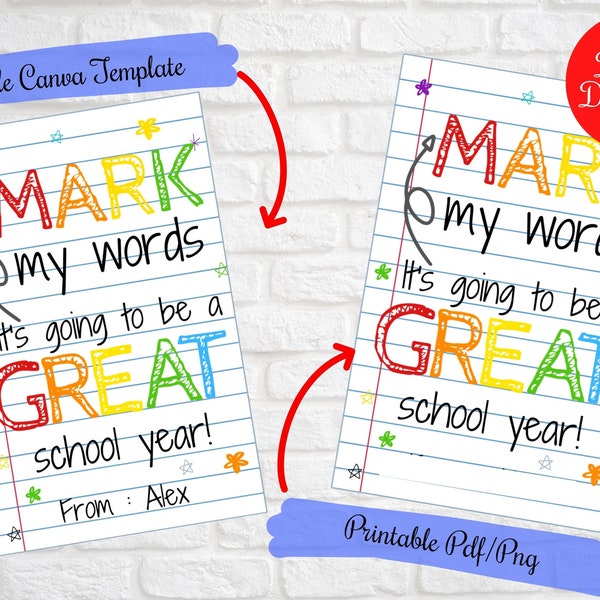 Canva Template
MARK
my words
It's going to be a
GREAT
school year!
From : Alex
MAR
my
It's going to be
GREAT
school year!
Printable Pdf/Png